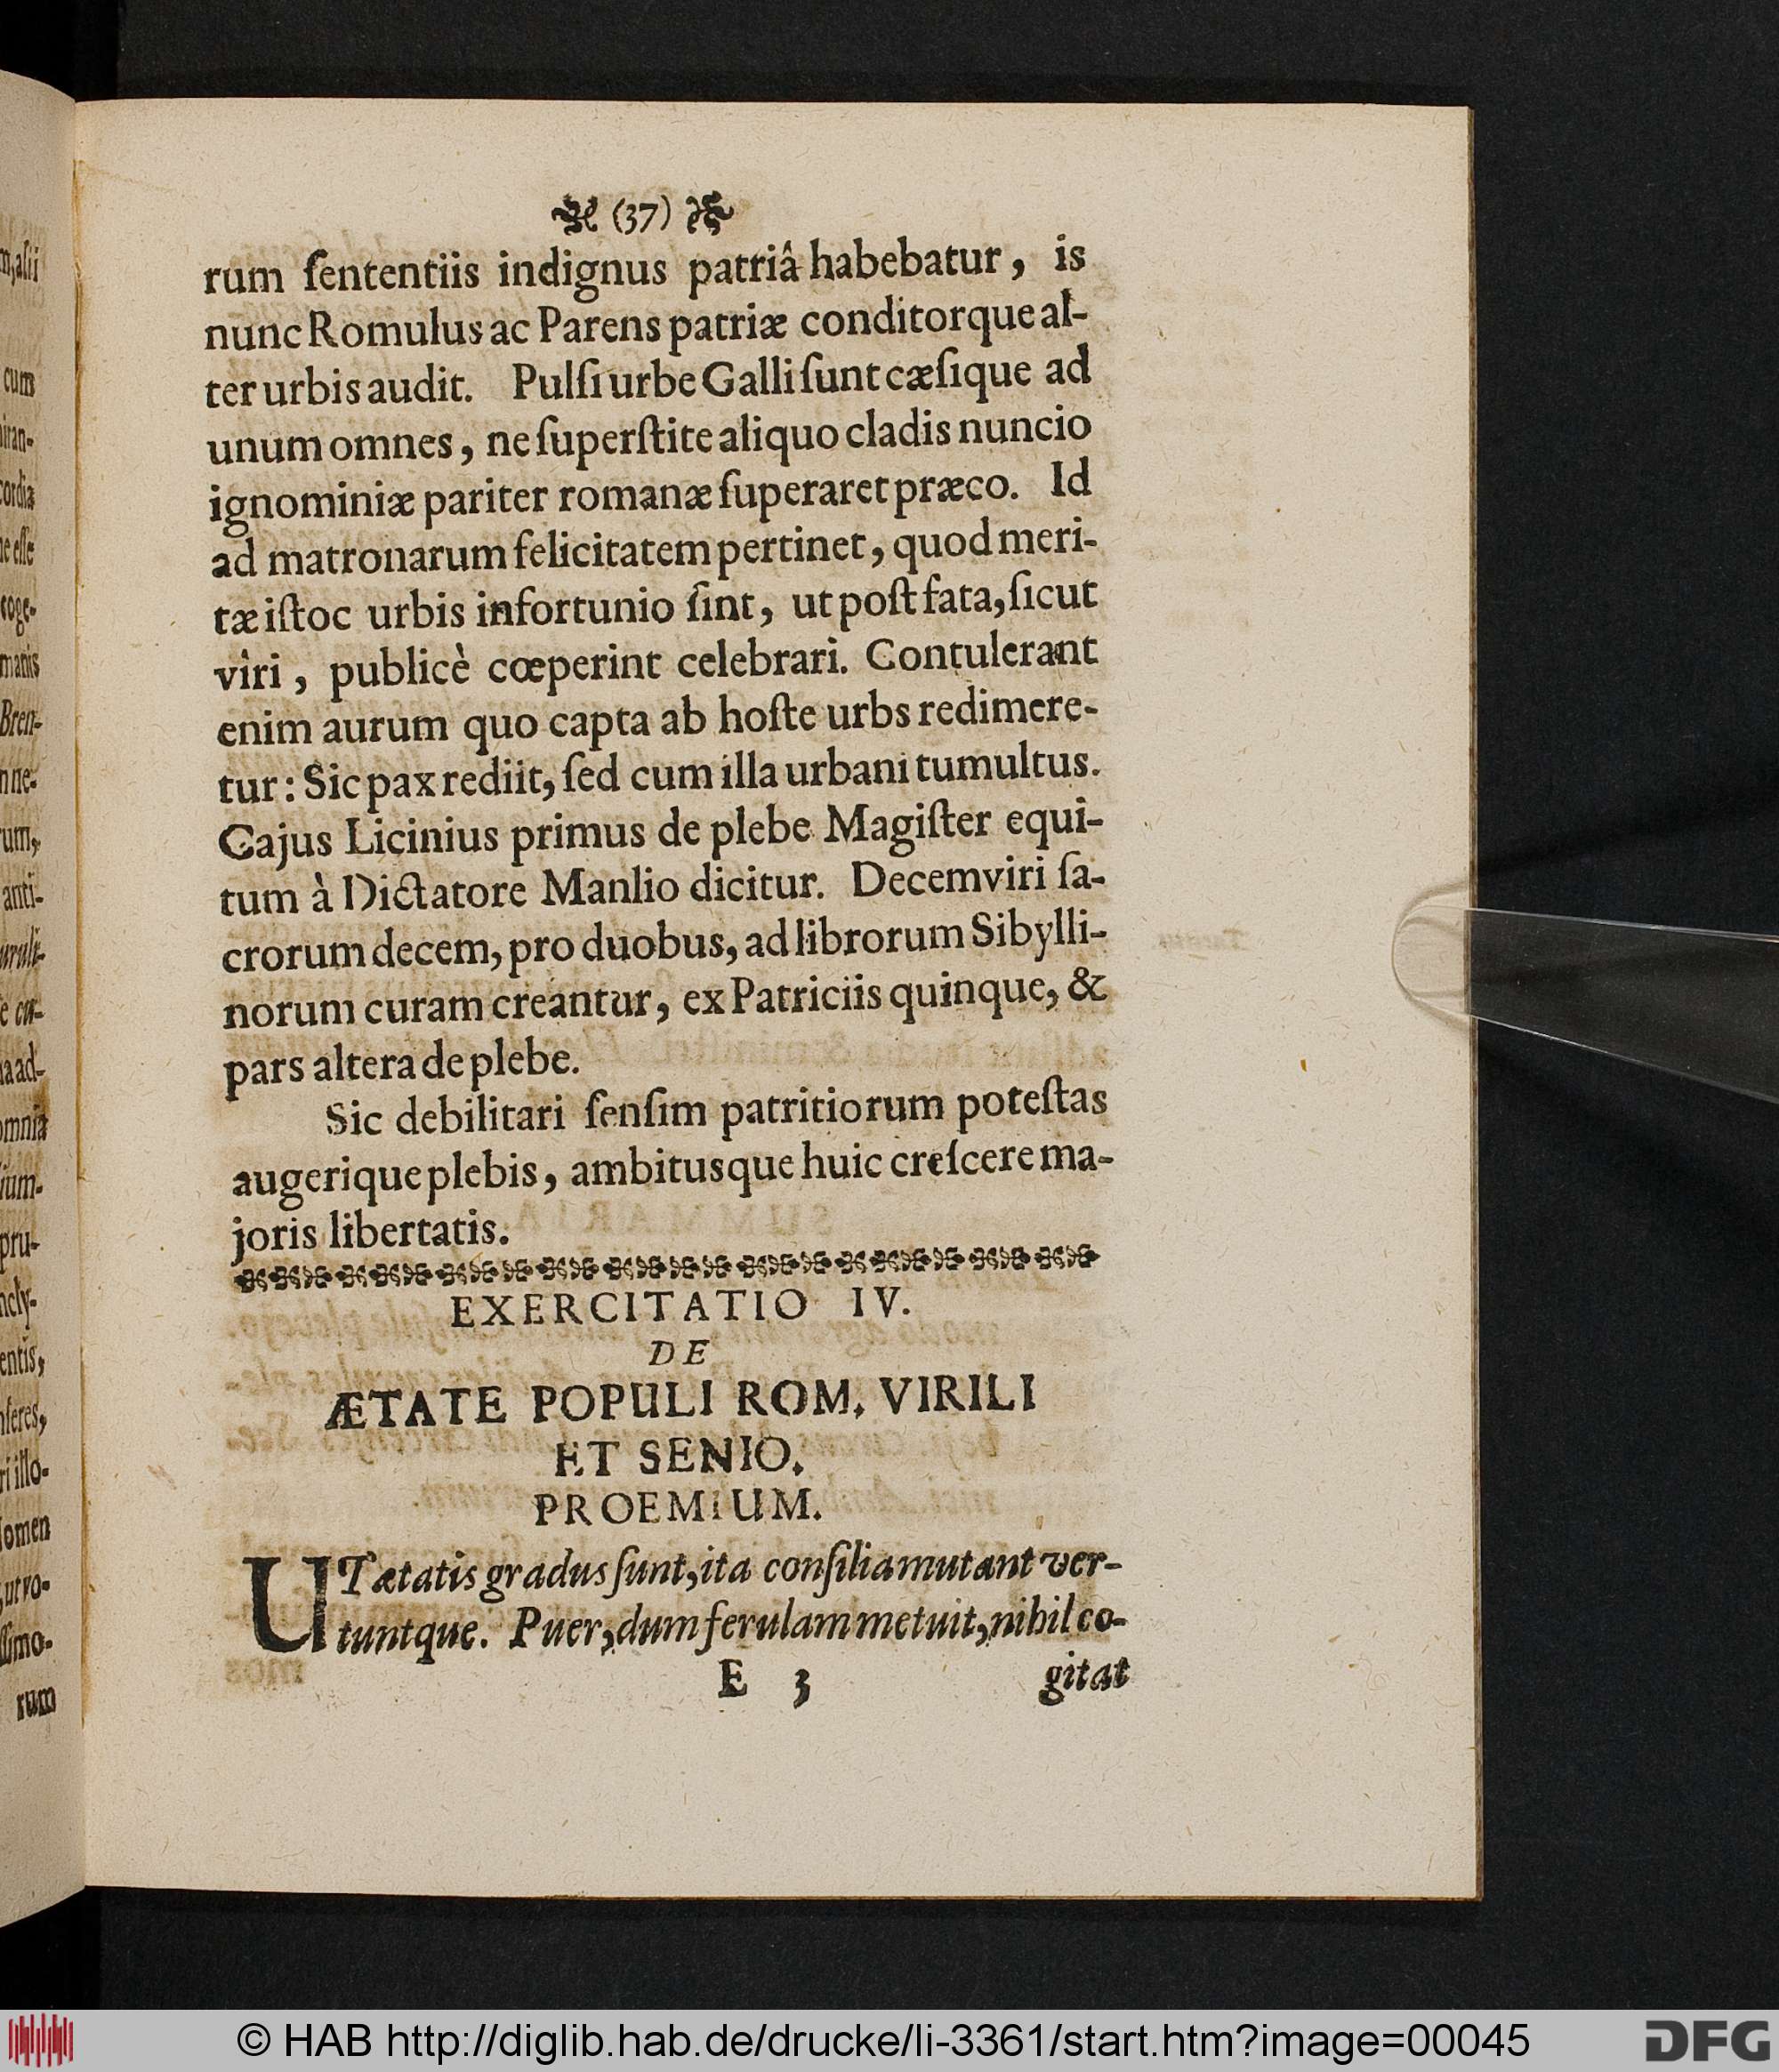 (37)
rum ſententiis indignus patriâ habebatur, is
nunc Romulus ac Parens patriæ conditorque al-
ter urbis audit. Pulſi urbe Galli ſunt cæſique ad
unum omnes, ne ſuperſtite aliquo cladis nuncio
ignominiæ pariter romanæ ſuperaret præco. Id
ad matronarum felicitatem pertinet, quod meri-
tæ iſtoc urbis infortunio ſint, ut poſt fata, ſicut
viri, publicè cœperint celebrari. Contulerant
enim aurum quo capta ab hoſte urbs redimere-
tur: Sic pax rediit, ſed cum illa urbani tumultus.
Cajus Licinius primus de plebe Magiſter equi-
tum à Dictatore Manlio dicitur. Decemviri ſa-
crorum decem, pro duobus, ad librorum Sibylli-
norum curam creantur, ex Patriciis quinque, &
pars altera de plebe.
Sic debilitari ſenſim patritiorum poteſtas
augerique plebis, ambitusque huic creſcere ma-
joris libertatis.
EXERCITATIO IV.
DE
ÆTATE POPULI ROM. VIRILI
ET SENIO.
PROEMIUM.
UT ætatis gradus ſunt, ita conſilia mutant ver-
tuntque. Puer, dum ferulam metuit, nihil co-
E 3 gitat
cum
cordia
manis
Bren-
anti-
omnia
pru-
rum
© HAB http://diglib.hab.de/drucke/li-3361/start.htm?image=00045
DFG